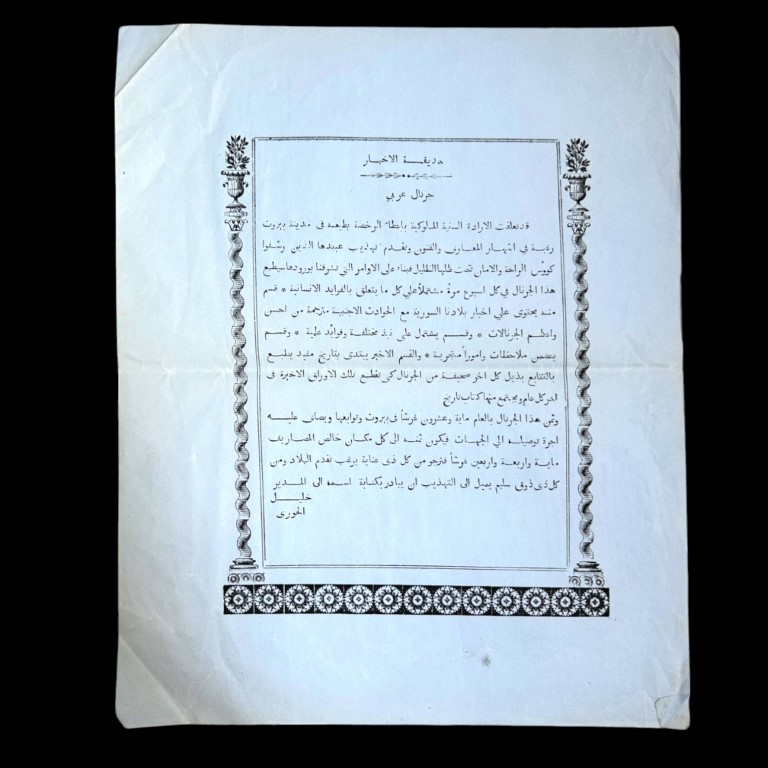 حديقة الاخبار
جرنال عربي
قد تعلقت الارادة السنية الملوكية باعطاء الرخصة بطبعه في مدينة بيروت
رغبة في اشهار المعارف والفنون وتقدم تهذيب عبيدها الذين رشفوا
كووس الراحة والامان تحت ظلها الظليل فبناء على الاوامر التي تشرفنا بورودها سيطبع
هذا الجرنال في كل اسبوع مرة مشتملاً على كل ما يتعلق بالفوايد الانسانية * قسم
منه يحتوى على اخبار بلادنا السورية مع الحوادث الاجنبية مترجمة من احسن
واعظم الجرنالات * وقسم يشتمل على نبذ مختلفة وفوايد علمية * وقسم
يتضمن ملاحظات وامورا متجرية * والقسم الاخير يبتدى بتاريخ مفيد ينطبع
بالتتابع بذيل كل اخر صحيفة من الجرنال كى تقطع تلك الاوراق الاخيرة فى
اخر كل عام ويجتمع منها كتاب تاريخ
وثمن هذا الجرنال بالعام ماية وعشرون غرشاً فى بيروت وتوابعها ويضاف عليه
اجرة توصيله الى الجهات فيكون ثمنه الى كل مكان خالص المصاريف
ماية واربعة واربعين غرشاً فنرجو من كل ذى عناية يرغب تقدم البلاد ومن
كل ذى ذوق سليم يميل الى التهذيب ان يبادر بكتابة اسمه الى المدير
خليل
الخورى